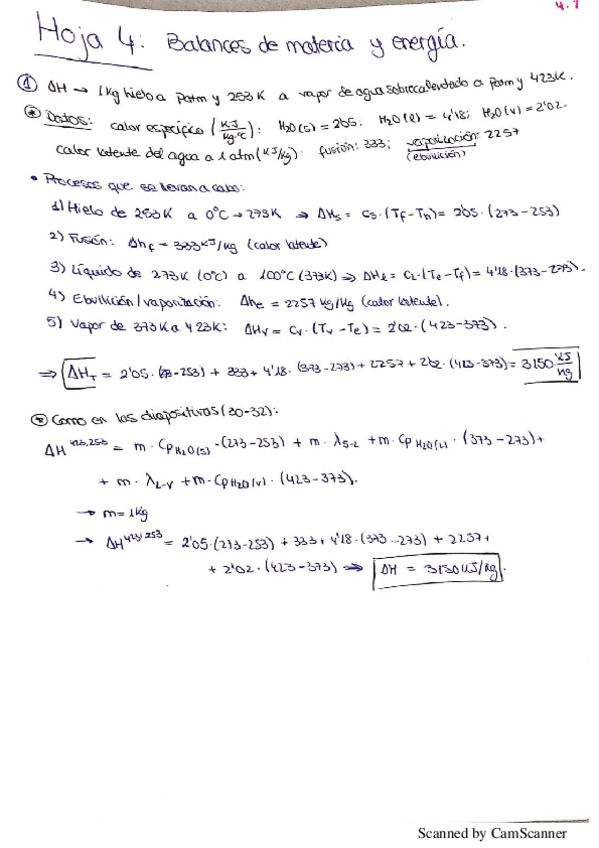 4.1
Hoja 4: Balances de materia y energía.
① ΔH → 1kg hielo a Patm y 253 K a vapor de agua sobrecalentado a Patm y 423K.
* Datos: calor específico (KJ/Kg·ºC): H2O(s) = 2'05; H2O(l) = 4'18; H2O(v) = 2'02.
calor latente del agua a 1 atm (KJ/kg): fusión: 333; vaporización: 2257
(ebullición)
• Procesos que se llevan a cabo:
1) Hielo de 253K a 0ºC → 273K ⇒ ΔHs = Cs·(Tf-Th) = 2'05·(273-253)
2) Fusión: Δhf = 333 KJ/kg (calor latente)
3) Líquido de 273K (0ºC) a 100ºC (373K) ⇒ ΔHl = CL·(Te-Tf) = 4'18·(373-273).
4) Ebullición/vaporización: Δhe = 2257 kg/kg (calor latente).
5) Vapor de 373K a 423K: ΔHv = Cv·(Tv-Te) = 2'02·(423-373).
⇒ ΔHT = 2'05·(273-253) + 333 + 4'18·(373-273) + 2257 + 2'02·(423-373) = 3150 KJ/kg
* Como en las diapositivas (30-32):
ΔH^423,253 = m·CpH2O(s)·(273-253) + m·λs-l + m·CpH2O(l)·(373-273) +
+ m·λl-v + m·CpH2O(v)·(423-373).
→ m = 1Kg
→ ΔH^423,253 = 2'05·(273-253) + 333 + 4'18·(373-273) + 2257 +
+ 2'02·(423-373) ⇒ ΔH = 3150 KJ/kg.
Scanned by CamScanner